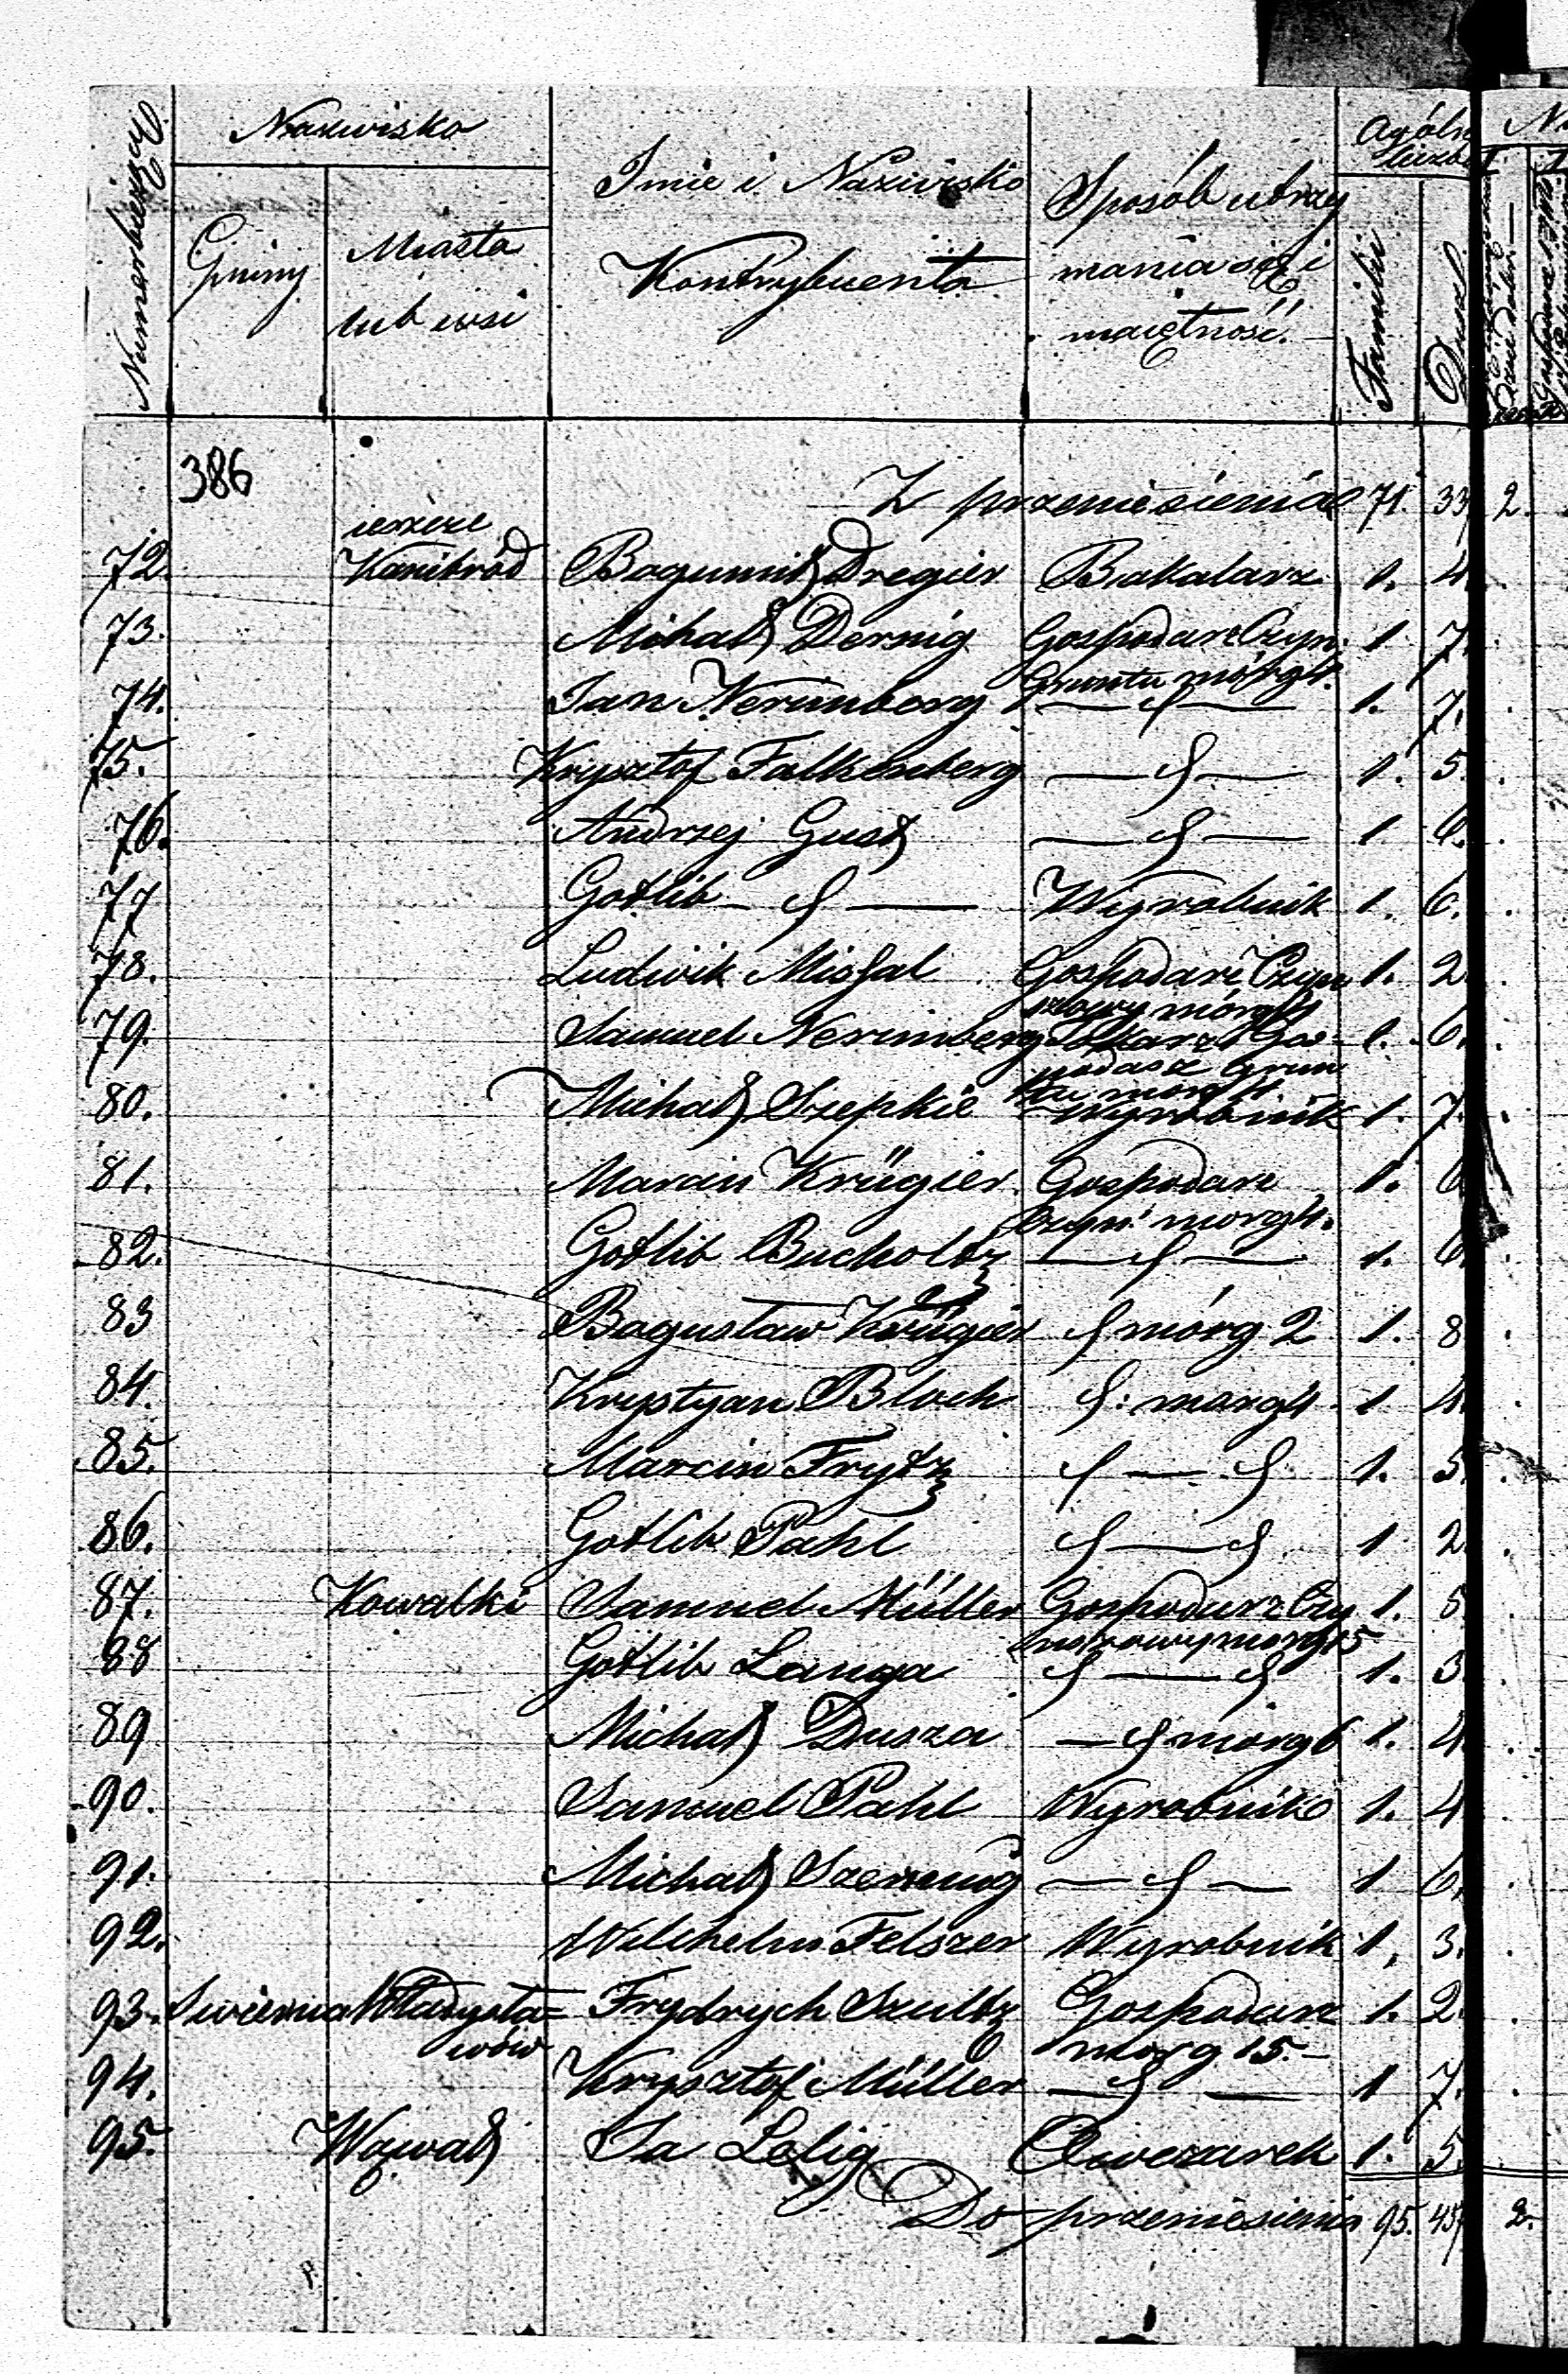 Numer bieżący
Nazwisko
Gminy
Miasta
lub wsi
Imie i Nazwisko
Kontrybuenta
Sposób utrzy
mania się i
maiętność.
Ogóln
liczba
Familii
Dusz
386
Z przeniesienia 71. 33 2.
ieszcze
72. Kanibród Bogumił Dregier Bakalarz 1. 4
73. Michał Dernig Gospodarz Czyn. 1. 7
Gruntu mórg 4.
74. Jan Nerimberg — 〃 — 1. 7.
75. Krysztof Falkenberg — 〃 — 1. 5.
76. Andrzej Gust — 〃 — 1. 6.
77 Gotlib — 〃 — Wyrobnik 1. 6.
78. Ludwik Misfal Gospodarz Czyn 1. 2
szowy mórg 4
79. Samuel Nerimberg Gos- 1. 6.
podasz Grun
tu morg 4
80. Michał Szepkie Wyrobnik 1. 7.
81. Marcin Krügier Gospodarz 1. 6
Czyn. morg 4.
82. Gotlib Bucholtz — 〃 — 1. 6
83 Bogusław Krügier 〃 mórg 2 1. 8
84. Krystyan Bloch 〃: morg 4 1 4.
85. Marcin Frytz 〃 — 〃 1. 5.
86. Gotlib Pahl 〃 — 〃 1 2
87. Kowalki Samuel Müller Gospodarz Czy 1. 5
nszowy morg 15
88 Gotlib Langa 〃 — 〃 1. 3
89 Michał Dusza — 〃 mórg 6 1. 4
90. Samuel Pahl Wyrobnik 1. 4
91. Michał — 〃 — 1 6.
92. Wilchelm Felszer Wyrobnik 1. 3.
93. Władysła= Frydrych Szultz Gospodarz 1. 2.
wów morg 15.—
94. Krysztof Müller — 〃 — 1 7.
95. Wąwał Ja Lelig Owczarek 1. 5.
Do przeniesienia 95. 2.